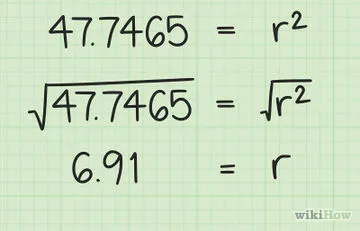 47.7465 = r²
√47.7465 = √r²
6.91 = r
wikiHow